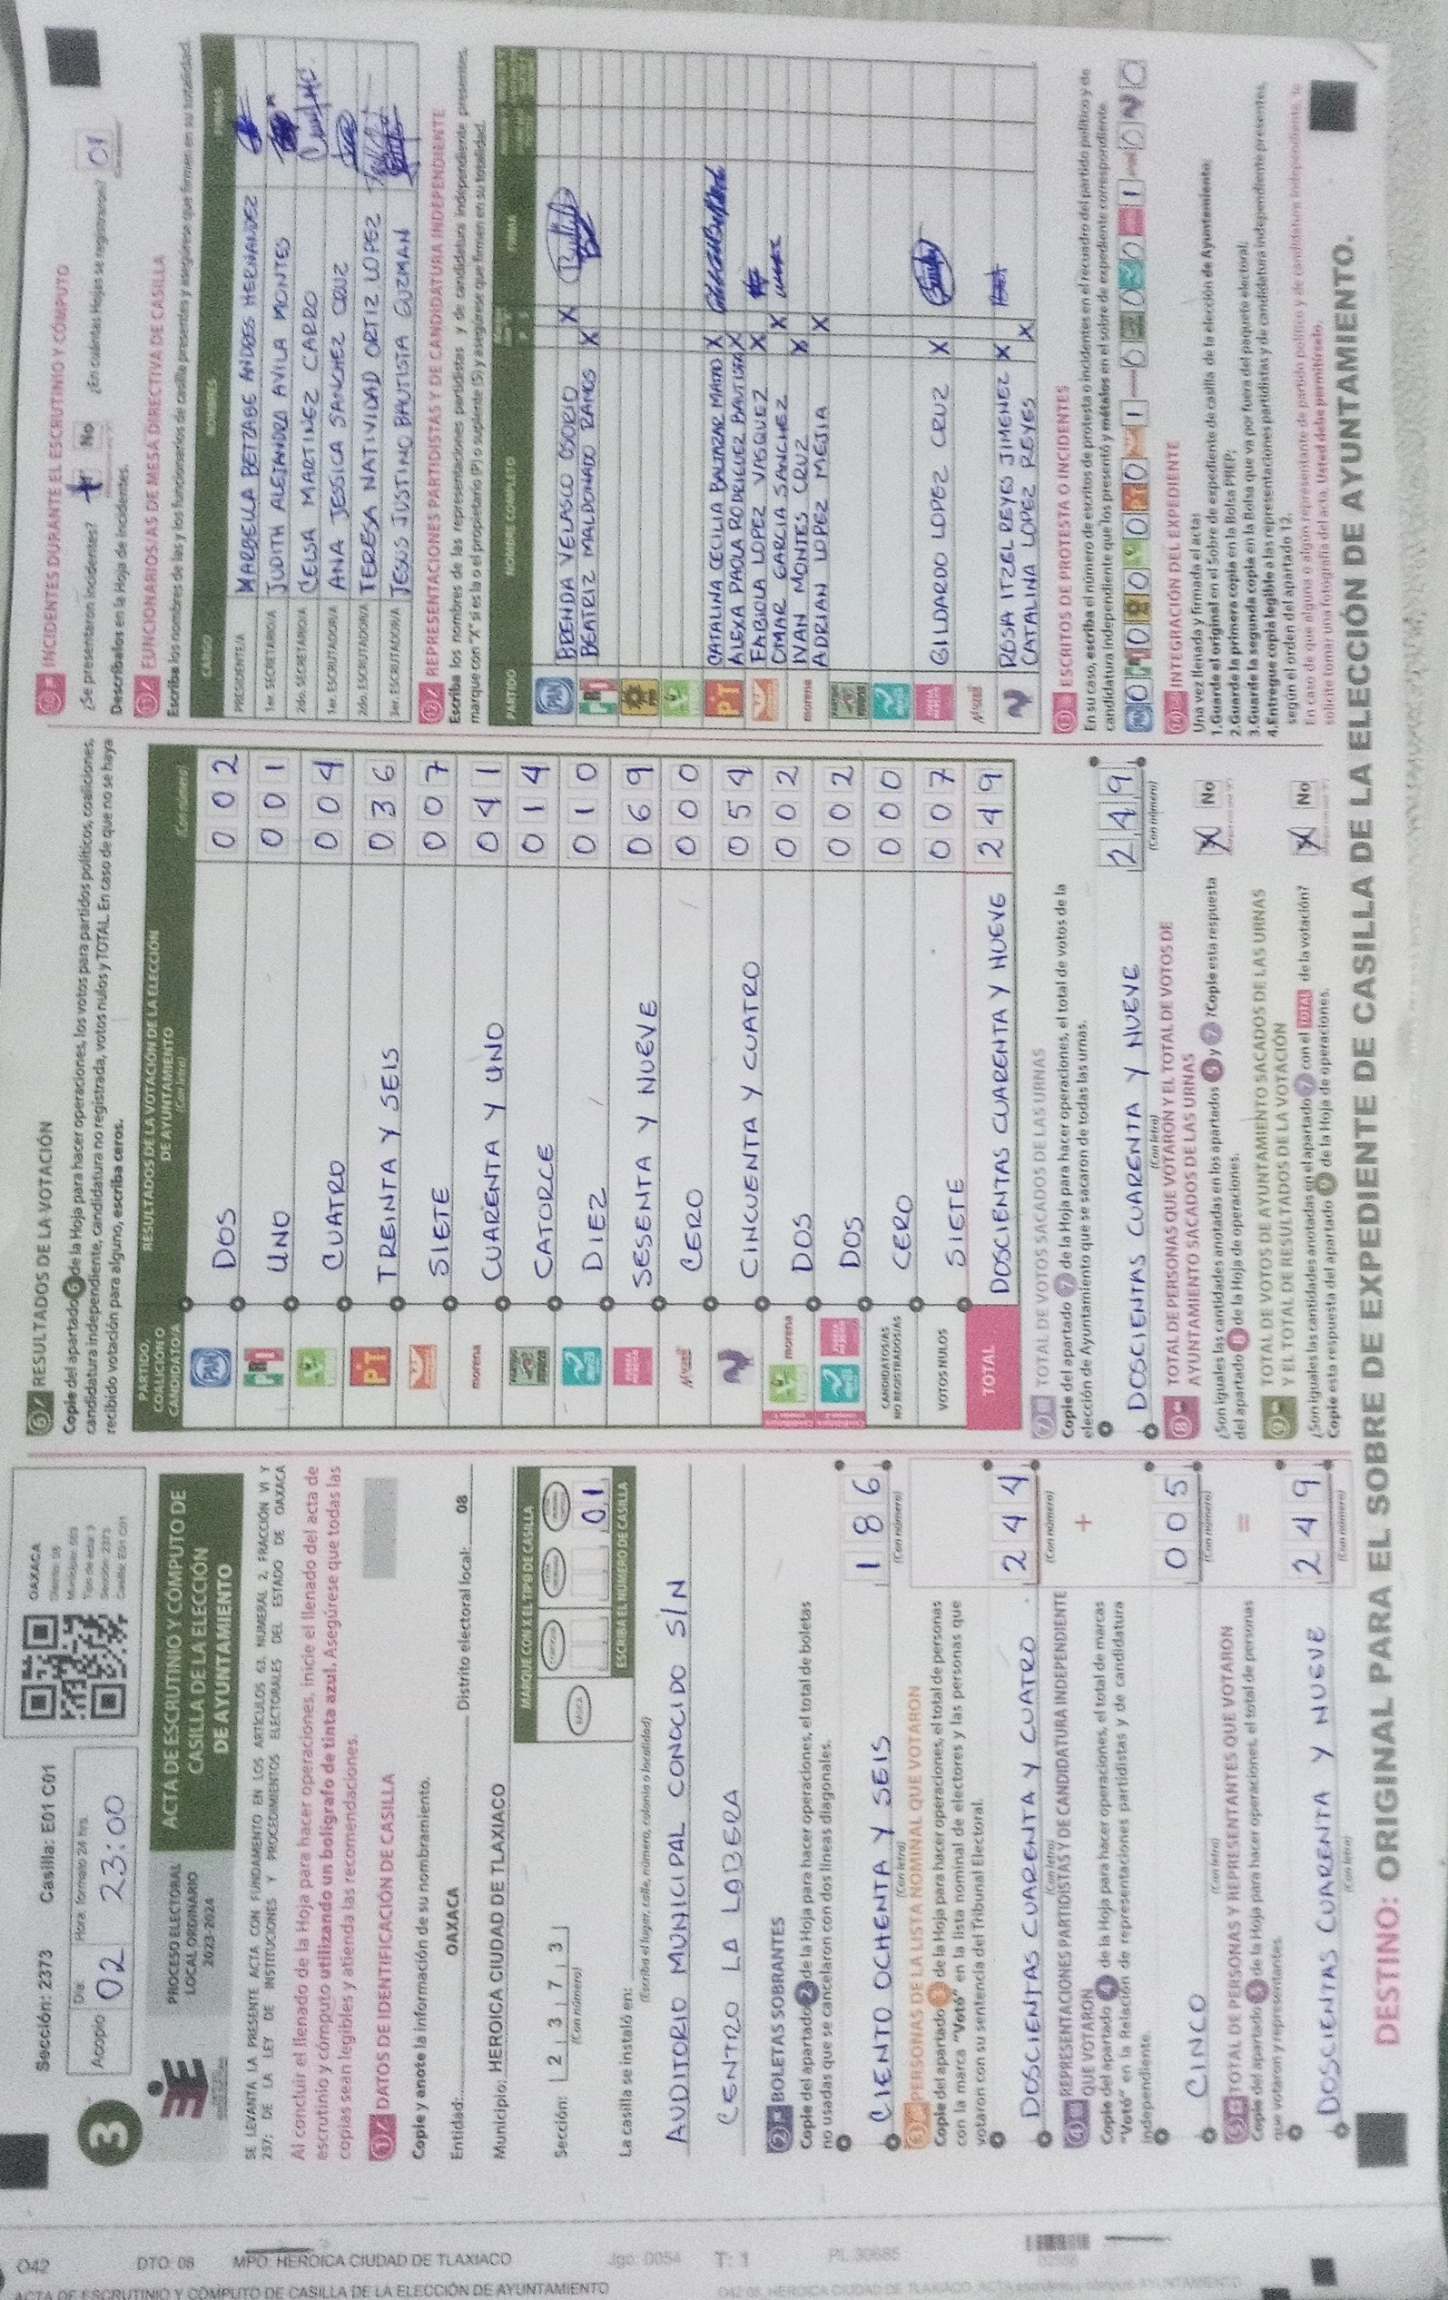 Sección: 2373 Casilla: E01 C01
3
Acopio
Día: 02
Hora: formato 24 hrs. 23:00
OAXACA
Distrito: 08
Sección: 2373
Casilla: E01 C01
PROCESO ELECTORAL
LOCAL ORDINARIO
2023-2024
ACTA DE ESCRUTINIO Y CÓMPUTO DE
CASILLA DE LA ELECCIÓN
DE AYUNTAMIENTO
SE LEVANTA LA PRESENTE ACTA CON FUNDAMENTO EN LOS ARTÍCULOS 63, NUMERAL 2, FRACCIÓN VI Y
257; DE LA LEY DE INSTITUCIONES Y PROCEDIMIENTOS ELECTORALES DEL ESTADO DE OAXACA
Al concluir el llenado de la Hoja para hacer operaciones, inicie el llenado del acta de
escrutinio y cómputo utilizando un bolígrafo de tinta azul. Asegúrese que todas las
copias sean legibles y atienda las recomendaciones.
1 DATOS DE IDENTIFICACIÓN DE CASILLA
Copie y anote la información de su nombramiento.
Entidad: OAXACA Distrito electoral local: 08
Municipio: HEROICA CIUDAD DE TLAXIACO
Sección: 2 3 7 3
(Con número)
MARQUE CON X EL TIPO DE CASILLA
BÁSICA
01
ESCRIBA EL NÚMERO DE CASILLA
La casilla se instaló en:
(Escriba el lugar, calle, número, colonia o localidad)
AUDITORIO MUNICIPAL CONOCIDO S/N
CENTRO LA LOBERA
2 BOLETAS SOBRANTES
Copie del apartado 2 de la Hoja para hacer operaciones, el total de boletas
no usadas que se cancelaron con dos líneas diagonales.
CIENTO OCHENTA Y SEIS 186
(Con letra) (Con número)
3 PERSONAS DE LA LISTA NOMINAL QUE VOTARON
Copie del apartado 3 de la Hoja para hacer operaciones, el total de personas
con la marca "Votó" en la lista nominal de electores y las personas que
votaron con su sentencia del Tribunal Electoral.
DOSCIENTAS CUARENTA Y CUATRO 244
(Con letra) (Con número)
+
4 REPRESENTACIONES PARTIDISTAS Y DE CANDIDATURA INDEPENDIENTE
QUE VOTARON
Copie del apartado 4 de la Hoja para hacer operaciones, el total de marcas
"Votó" en la Relación de representaciones partidistas y de candidatura
independiente.
CINCO 005
(Con letra) (Con número)
=
5 TOTAL DE PERSONAS Y REPRESENTANTES QUE VOTARON
Copie del apartado 5 de la Hoja para hacer operaciones, el total de personas
que votaron y representantes.
DOSCIENTAS CUARENTA Y NUEVE 249
(Con letra) (Con número)
6 RESULTADOS DE LA VOTACIÓN
Copie del apartado 6 de la Hoja para hacer operaciones, los votos para partidos políticos, coaliciones,
candidatura independiente, candidatura no registrada, votos nulos y TOTAL. En caso de que no se haya
recibido votación para alguno, escriba ceros.
PARTIDO, COALICIÓN O CANDIDATO/A
RESULTADOS DE LA VOTACIÓN DE LA ELECCIÓN
DE AYUNTAMIENTO
(Con letra) (Con número)
PAN DOS 002
PRI UNO 001
CUATRO 004
PT TREINTA Y SEIS 036
SIETE 007
morena CUARENTA Y UNO 041
CATORCE 014
DIEZ 010
SESENTA Y NUEVE 069
CERO 000
CINCUENTA Y CUATRO 054
morena DOS 002
DOS 002
CANDIDATOS/AS NO REGISTRADOS/AS CERO 000
VOTOS NULOS SIETE 007
TOTAL DOSCIENTAS CUARENTA Y NUEVE 249
7 TOTAL DE VOTOS SACADOS DE LAS URNAS
Copie del apartado 7 de la Hoja para hacer operaciones, el total de votos de la
elección de Ayuntamiento que se sacaron de todas las urnas.
DOSCIENTAS CUARENTA Y NUEVE 249
(Con letra) (Con número)
8 TOTAL DE PERSONAS QUE VOTARON Y EL TOTAL DE VOTOS DE
AYUNTAMIENTO SACADOS DE LAS URNAS
¿Son iguales las cantidades anotadas en los apartados 5 y 7? Copie esta respuesta
del apartado 8 de la Hoja de operaciones.
X No
9 TOTAL DE VOTOS DE AYUNTAMIENTO SACADOS DE LAS URNAS
Y EL TOTAL DE RESULTADOS DE LA VOTACIÓN
¿Son iguales las cantidades anotadas en el apartado 7 con el TOTAL de la votación?
Copie esta respuesta del apartado 9 de la Hoja de operaciones.
X No
10 INCIDENTES DURANTE EL ESCRUTINIO Y CÓMPUTO
¿Se presentaron incidentes? No ¿En cuántas Hojas se registraron? 01
Descríbalos en la Hoja de incidentes.
11 FUNCIONARIOS/AS DE MESA DIRECTIVA DE CASILLA
Escriba los nombres de las y los funcionarios de casilla presentes y asegúrese que firmen en su totalidad.
CARGO NOMBRES FIRMAS
PRESIDENTE/A MARBELLA BETZABE ANDRES HERNANDEZ
1er. SECRETARIO/A JUDITH ALEJANDRA AVILA MONTES
2do. SECRETARIO/A CELSA MARTINEZ CARRO
1er. ESCRUTADOR/A ANA JESSICA SANCHEZ CRUZ
2do. ESCRUTADOR/A TERESA NATIVIDAD ORTIZ LOPEZ
3er. ESCRUTADOR/A JESUS JUSTINO BAUTISTA GUZMAN
12 REPRESENTACIONES PARTIDISTAS Y DE CANDIDATURA INDEPENDIENTE
Escriba los nombres de las representaciones partidistas y de candidatura independiente presentes,
marque con "X" si es la o el propietario (P) o suplente (S) y asegúrese que firmen en su totalidad.
PARTIDO NOMBRE COMPLETO FIRMA
PAN BRENDA VELASCO OSORIO X
PRI BEATRIZ MALDONADO RAMOS X
PT CATALINA CECILIA BALTAZAR MATEO X
ALEXA PAOLA RODRIGUEZ BAUTISTA X
FABIOLA LOPEZ VASQUEZ X
OMAR GARCIA SANCHEZ X
morena IVAN MONTES CRUZ X
ADRIAN LOPEZ MEJIA X
GILDARDO LOPEZ CRUZ X
ROSA ITZEL REYES JIMENEZ X
CATALINA LOPEZ REYES X
13 ESCRITOS DE PROTESTA O INCIDENTES
En su caso, escriba el número de escritos de protesta o incidentes en el recuadro del partido político y de
candidatura independiente que los presentó y métalos en el sobre de expediente correspondiente.
0 0 0 0 0 1 0 0 0 1 0 0
14 INTEGRACIÓN DEL EXPEDIENTE
Una vez llenada y firmada el acta:
1.Guarde el original en el Sobre de expediente de casilla de la elección de Ayuntamiento;
2.Guarde la primera copia en la Bolsa PREP;
3.Guarde la segunda copia en la Bolsa que va por fuera del paquete electoral;
4.Entregue copia legible a las representaciones partidistas y de candidatura independiente presentes,
según el orden del apartado 12.
En caso de que alguna o algún representante de partido político y de candidatura independiente, le
solicite tomar una fotografía del acta, Usted debe permitírselo.
DESTINO: ORIGINAL PARA EL SOBRE DE EXPEDIENTE DE CASILLA DE LA ELECCIÓN DE AYUNTAMIENTO.
O42 DTO: 08 MPO: HEROICA CIUDAD DE TLAXIACO Jgo: 0054 T: 1 PL:30685
ACTA DE ESCRUTINIO Y CÓMPUTO DE CASILLA DE LA ELECCIÓN DE AYUNTAMIENTO